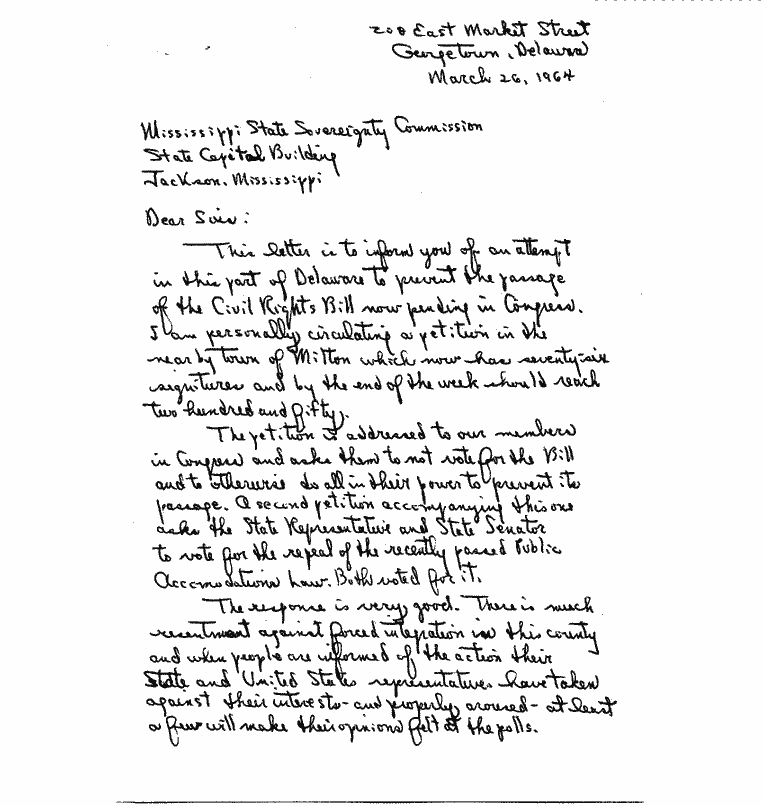 208 East Market Street
Georgetown, Delaware
March 26, 1964
Mississippi State Sovereignty Commission
State Capital Building
Jackson, Mississippi
Dear Sirs:
This letter is to inform you of an attempt
in this part of Delaware to prevent the passage
of the Civil Rights Bill now pending in Congress.
I am personally circulating a petition in the
nearby town of Milton which now has seventy-six
signitures and by the end of the week should reach
two hundred and fifty.
The petition is addressed to our members
in Congress and asks them to not vote for the Bill
and to otherwise do all in their power to prevent its
passage. A second petition accompanying this one
asks the State Representative and State Senator
to vote for the repeal of the recently passed Public
Accomodations Law. Both voted for it.
The response is very good. There is much
resentment against forced integration in this county
and when people are informed of the action their
State and United States representatives have taken
against their interests - and properly aroused - at least
a few will make their opinions felt at the polls.